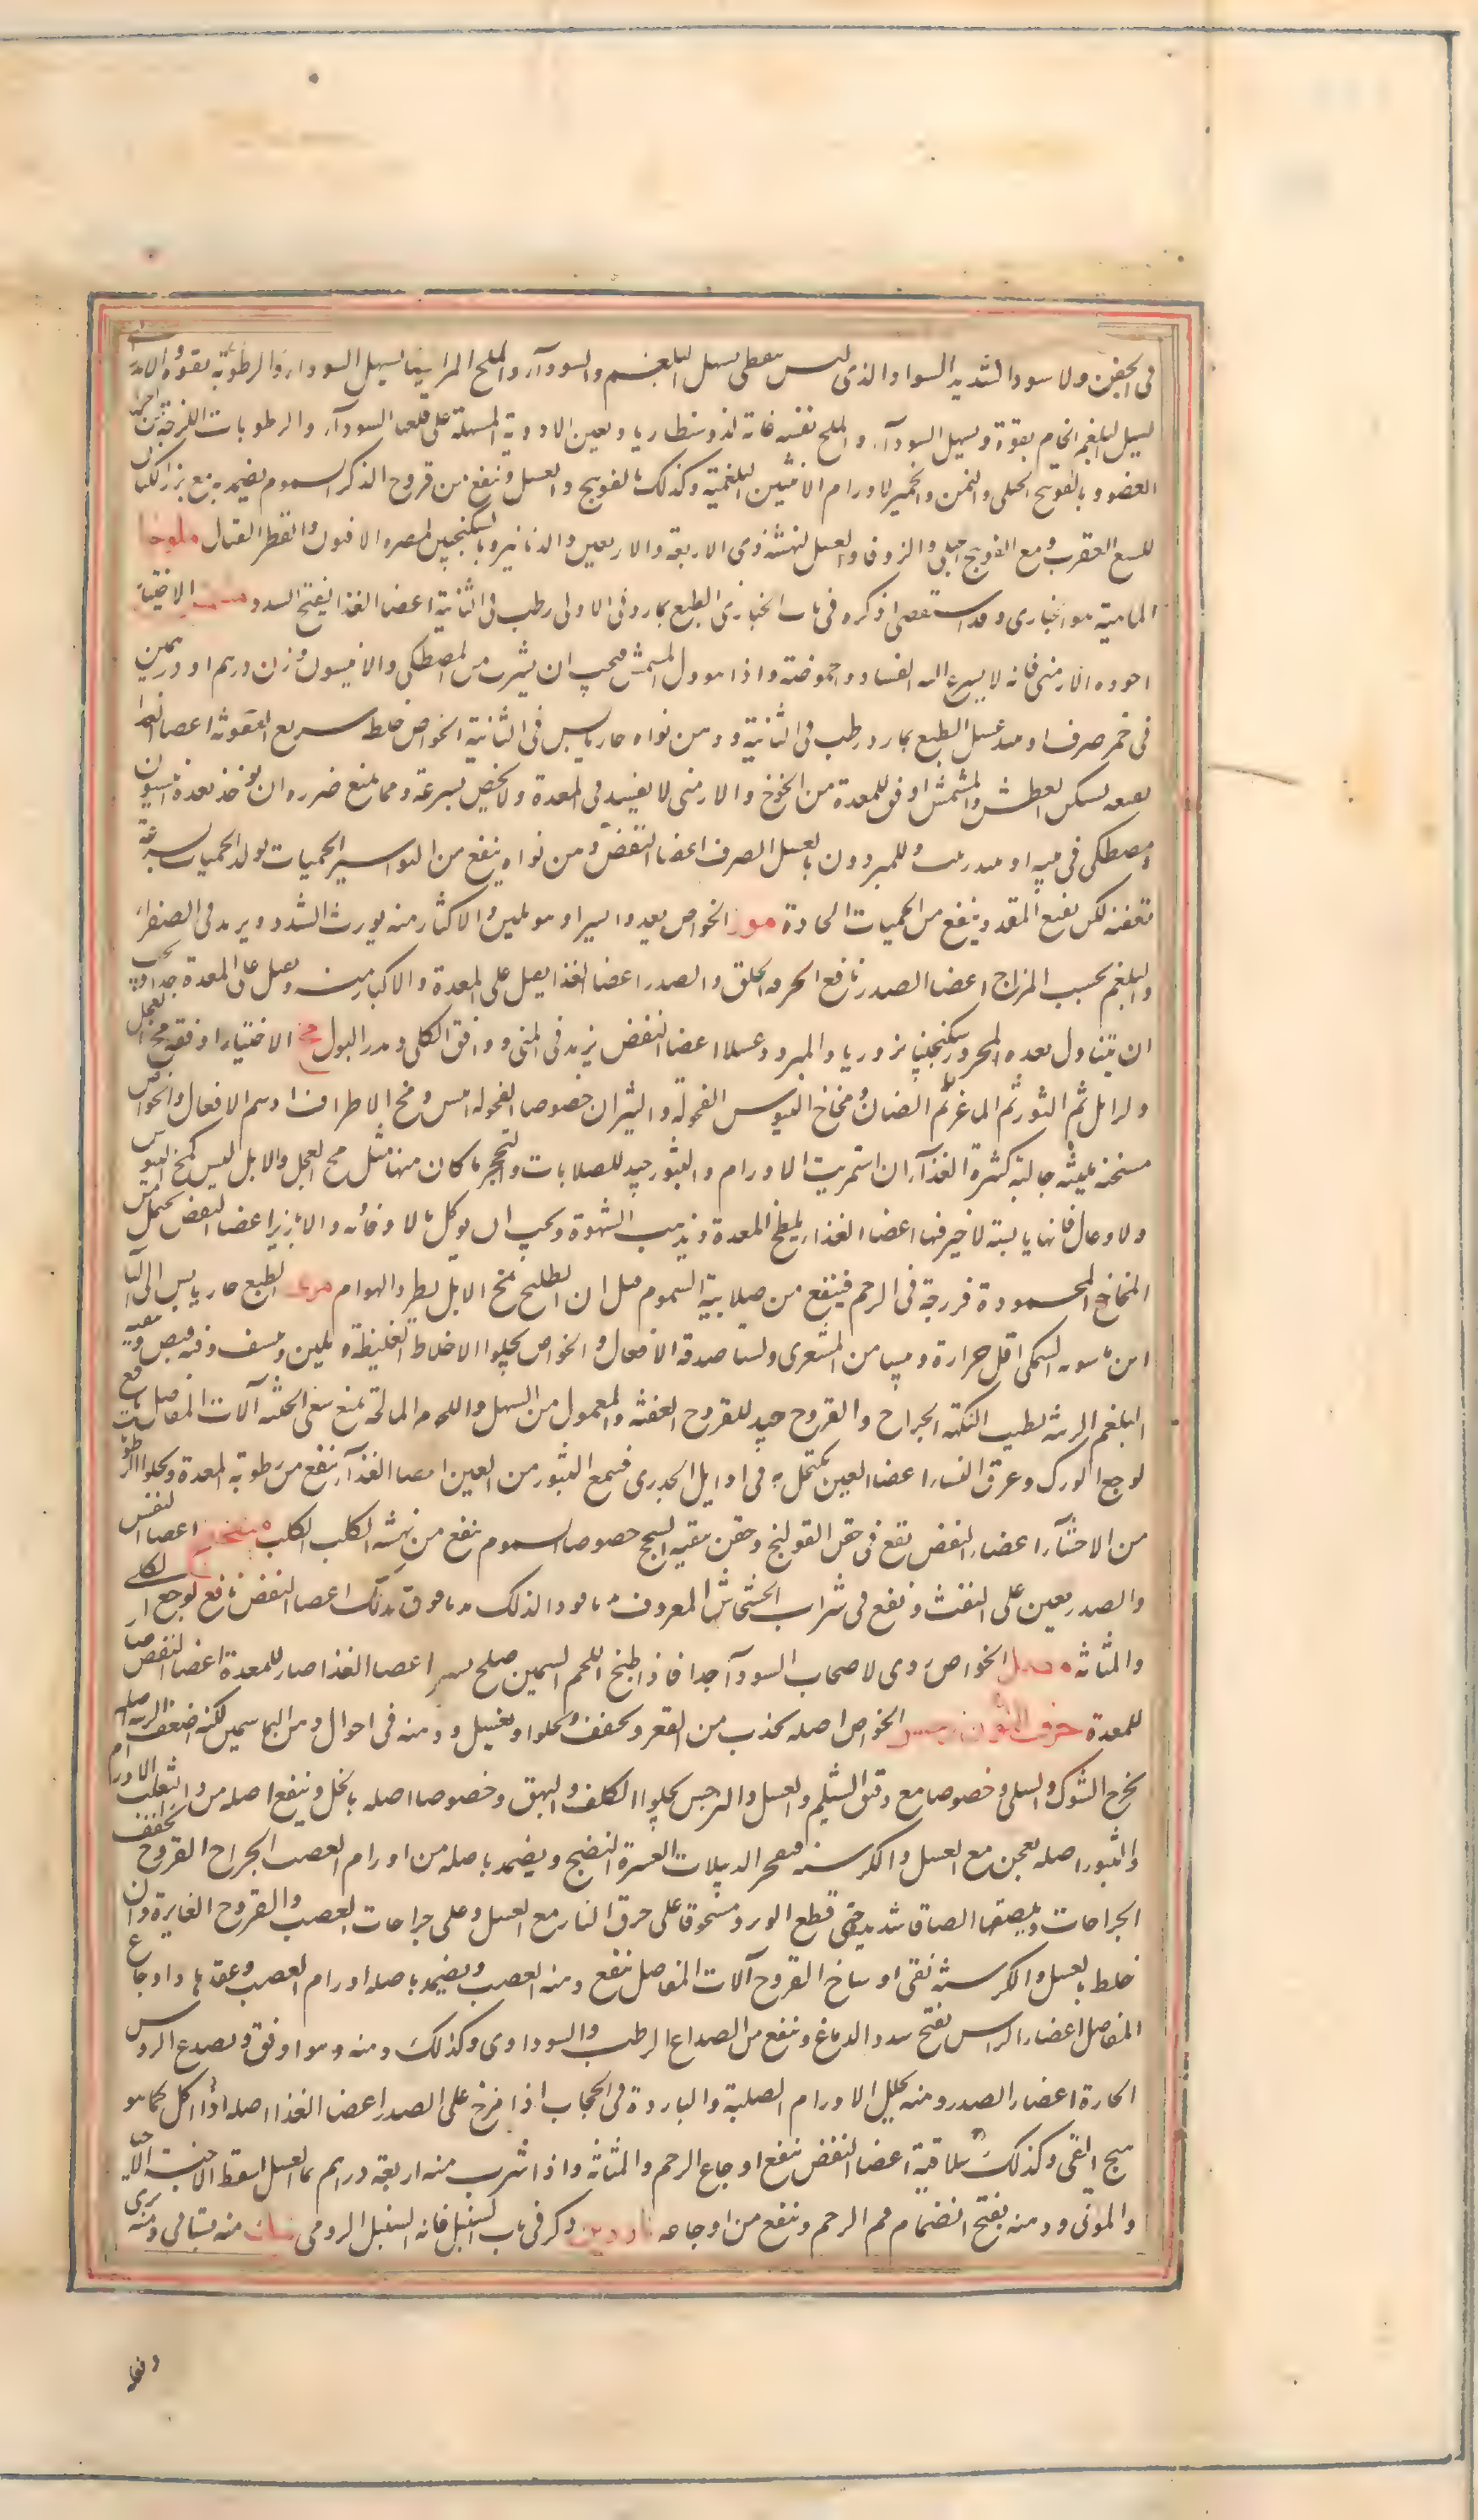 في الجفن ولاسود الشديد السواد والذي ليس بنفطي يسهل البلغم والسودآء والملح المر ايضا يسهل السوداء والرطوبة بقوة
يسهل البلغم الخام بقوة ويسهل السودآء والملح نفسه فانه لذو سنطاريا ويعين الادوية المسهلة على قلعها السودآء والرطوبات اللزجة من
العضو وبالفوتنج الجبلي والسمن والخمير لاورام الانثيين البلغمية وكذلك بالفوتنج والعسل وينفع من قروح الذكر السموم يضمد به مع بزر الكتان
للسع العقرب ومع الفوتنج الجبلي والزوفا والعسل لنهشة ذي الاربعة والاربعين والدنانير وبالسكنجبين لمضره الافيون والفطر القتال ملوخيا
الماهية هو الخبازي وقد استقصي ذكره في باب الخبازي الطبع بارد في الاولى رطب في الثانية اعضا الغذا يفتح السدد مشمش الاختيار
اجوده الارمني فانه لا يسرع اليه الفساد والحموضة واذا المشمش فيجب ان يشرب من المصطكي والانيسون وزن درهم او درهمين
في خمر صرف او عسل الطبع بارد رطب في الثانية ودهن نواه حار يابس في الثانية الخواص خلط سريع العفونة اعضا الغذا
نقيعه يسكن العطش والمشمش اوفق للمعدة من الخوخ والارمني لا يفسد في المعدة ولا يحمض بسرعة ومما يمنع ضرره ان يوخذ بعده انيسون
ومصطكي في ميبه او وللمبرودين بالعسل الصرف اعضا النفض دهن نواه ينفع من البواسير الحميات يولد الحميات بسرعة
تعفنه لكن نقيع المقدد ينفع من الحميات الحادة موز الخواص يغذو يسيرا وهو ملين والاكثار منه يورث السدد ويزيد في الصفراء
والبلغم بحسب المزاج اعضا الصدر نافع لحرقة الحلق والصدر اعضا الغذا يثقل على المعدة والاكثار منه يثقل على المعدة جدا ويجب
ان يتناول بعده المحرور سكنجبينا بزوريا والمبرود عسلا اعضا النفض يزيد في المني ويوافق الكلى ويدر البول مخ الاختيار اوفقه مخ العجل
والايل ثم الثور ثم الماعز ثم الضان ومخاخ التيوس الفحولة والثيران خصوصا الفحولة ايبس ومخ الاطراف ادسم الافعال والخواص
مسخنة ملينة جالبة كثيرة الغذآء ان استمريت الاورام والبثور جيد للصلابات والتحجر ما كان منها مثل مخ العجل والايل ليس كمخ التيوس
والاوعال فانها يابسة لا خير فيها اعضا الغذا يلطخ المعدة ويذهب الشهوة ويجب ان يوكل بالافاويه والابازير اعضا النفض يحتمل من
المخاخ المحمودة فرزجة في الرحم فينفع من صلابته السموم قيل ان التلطيخ بمخ الايل يطرد الهوام مري الطبع حار يابس الى الثالثة
ابن ماسويه السمكي اقل حرارة ويبسا من الشعيري الافعال والخواص يجلو الاخلاط الغليظة ويلين وينشف وفيه قبض وتنقية
البلغم اللزج يطيب النكهة الجراح والقروح جيد للقروح العفنة والمعمول من السمك واللحوم المالحة تمنع سعي الخبيثة آلات المفاصل نافع
لوجع الورك وعرق النسا اعضا العين يكتحل به في اوايل الجدري فيمنع البثور من العين اعضا الغذآء ينفع من رطوبة المعدة ويجلو الرطوبات
من الاحشآء اعضاء النفض يقع في حقن القولنج وحقن تنقية السحج خصوصا السموم ينفع من نهشة الكلب الكلب ميفختج اعضا النفس
والصدر يعين على النفث ويقع في شراب الخشخاش المعروف اعضا النفض نافع لوجع الكلى
والمثانه الخواص ردي لاصحاب السودآ جدا فاذا طبخ اللحم السمين صلح يسيرا اعضا الغذا ضار للمعدة اعضا النفض
للمعدة حرف النون نرجس الخواص اصله يجذب من القعر ويجفف ويجلو ويغسل ودهنه في احوال دهن الياسمين لكنه اضعف الزينة اصله
يخرج الشوك والسلى وخصوصا مع دقيق الشيلم والعسل والنرجس يجلو الكلف والبهق وخصوصا اصله بالخل وينفع اصله من دآء الثعلب الاورام
والبثور اصله يعجن مع العسل والكرسنه فيفجر الدبيلات العسرة النضج ويضمد باصله من اورام العصب الجراح القروح يجفف
الجراحات ويلصقها الصاقا شديدا حتى قطع الوتر ومسحوقا على حرق النار مع العسل وعلى جراحات العصب والقروح الغايرة وان
خلط بالعسل والكرسنه نقى اوساخ القروح آلات المفاصل ينفع دهنه العصب ويضمد باصله اورام العصب وعقدها واوجاع
المفاصل اعضاء الراس يفتح سدد الدماغ وينفع من الصداع الرطب والسوداوي وكذلك دهنه وهو اوفق ويصدع الروس
الحارة اعضاء الصدر دهنه يحلل الاورام الصلبة والباردة في الحجاب اذا مرخ على الصدر اعضا الغذا اصله اذا اكل كما هو
هيج القي وكذلك سلاقته اعضا النفض ينفع اوجاع الرحم والمثانه واذا شرب منه اربعة دراهم بمآء العسل اسقط الاجنة الاحيآء
والموتى ودهنه يفتح انضمام فم الرحم وينفع من اوجاعه ناردين ذكر في باب السنبل فانه السنبل الرومي منه بستاني ومنه بري